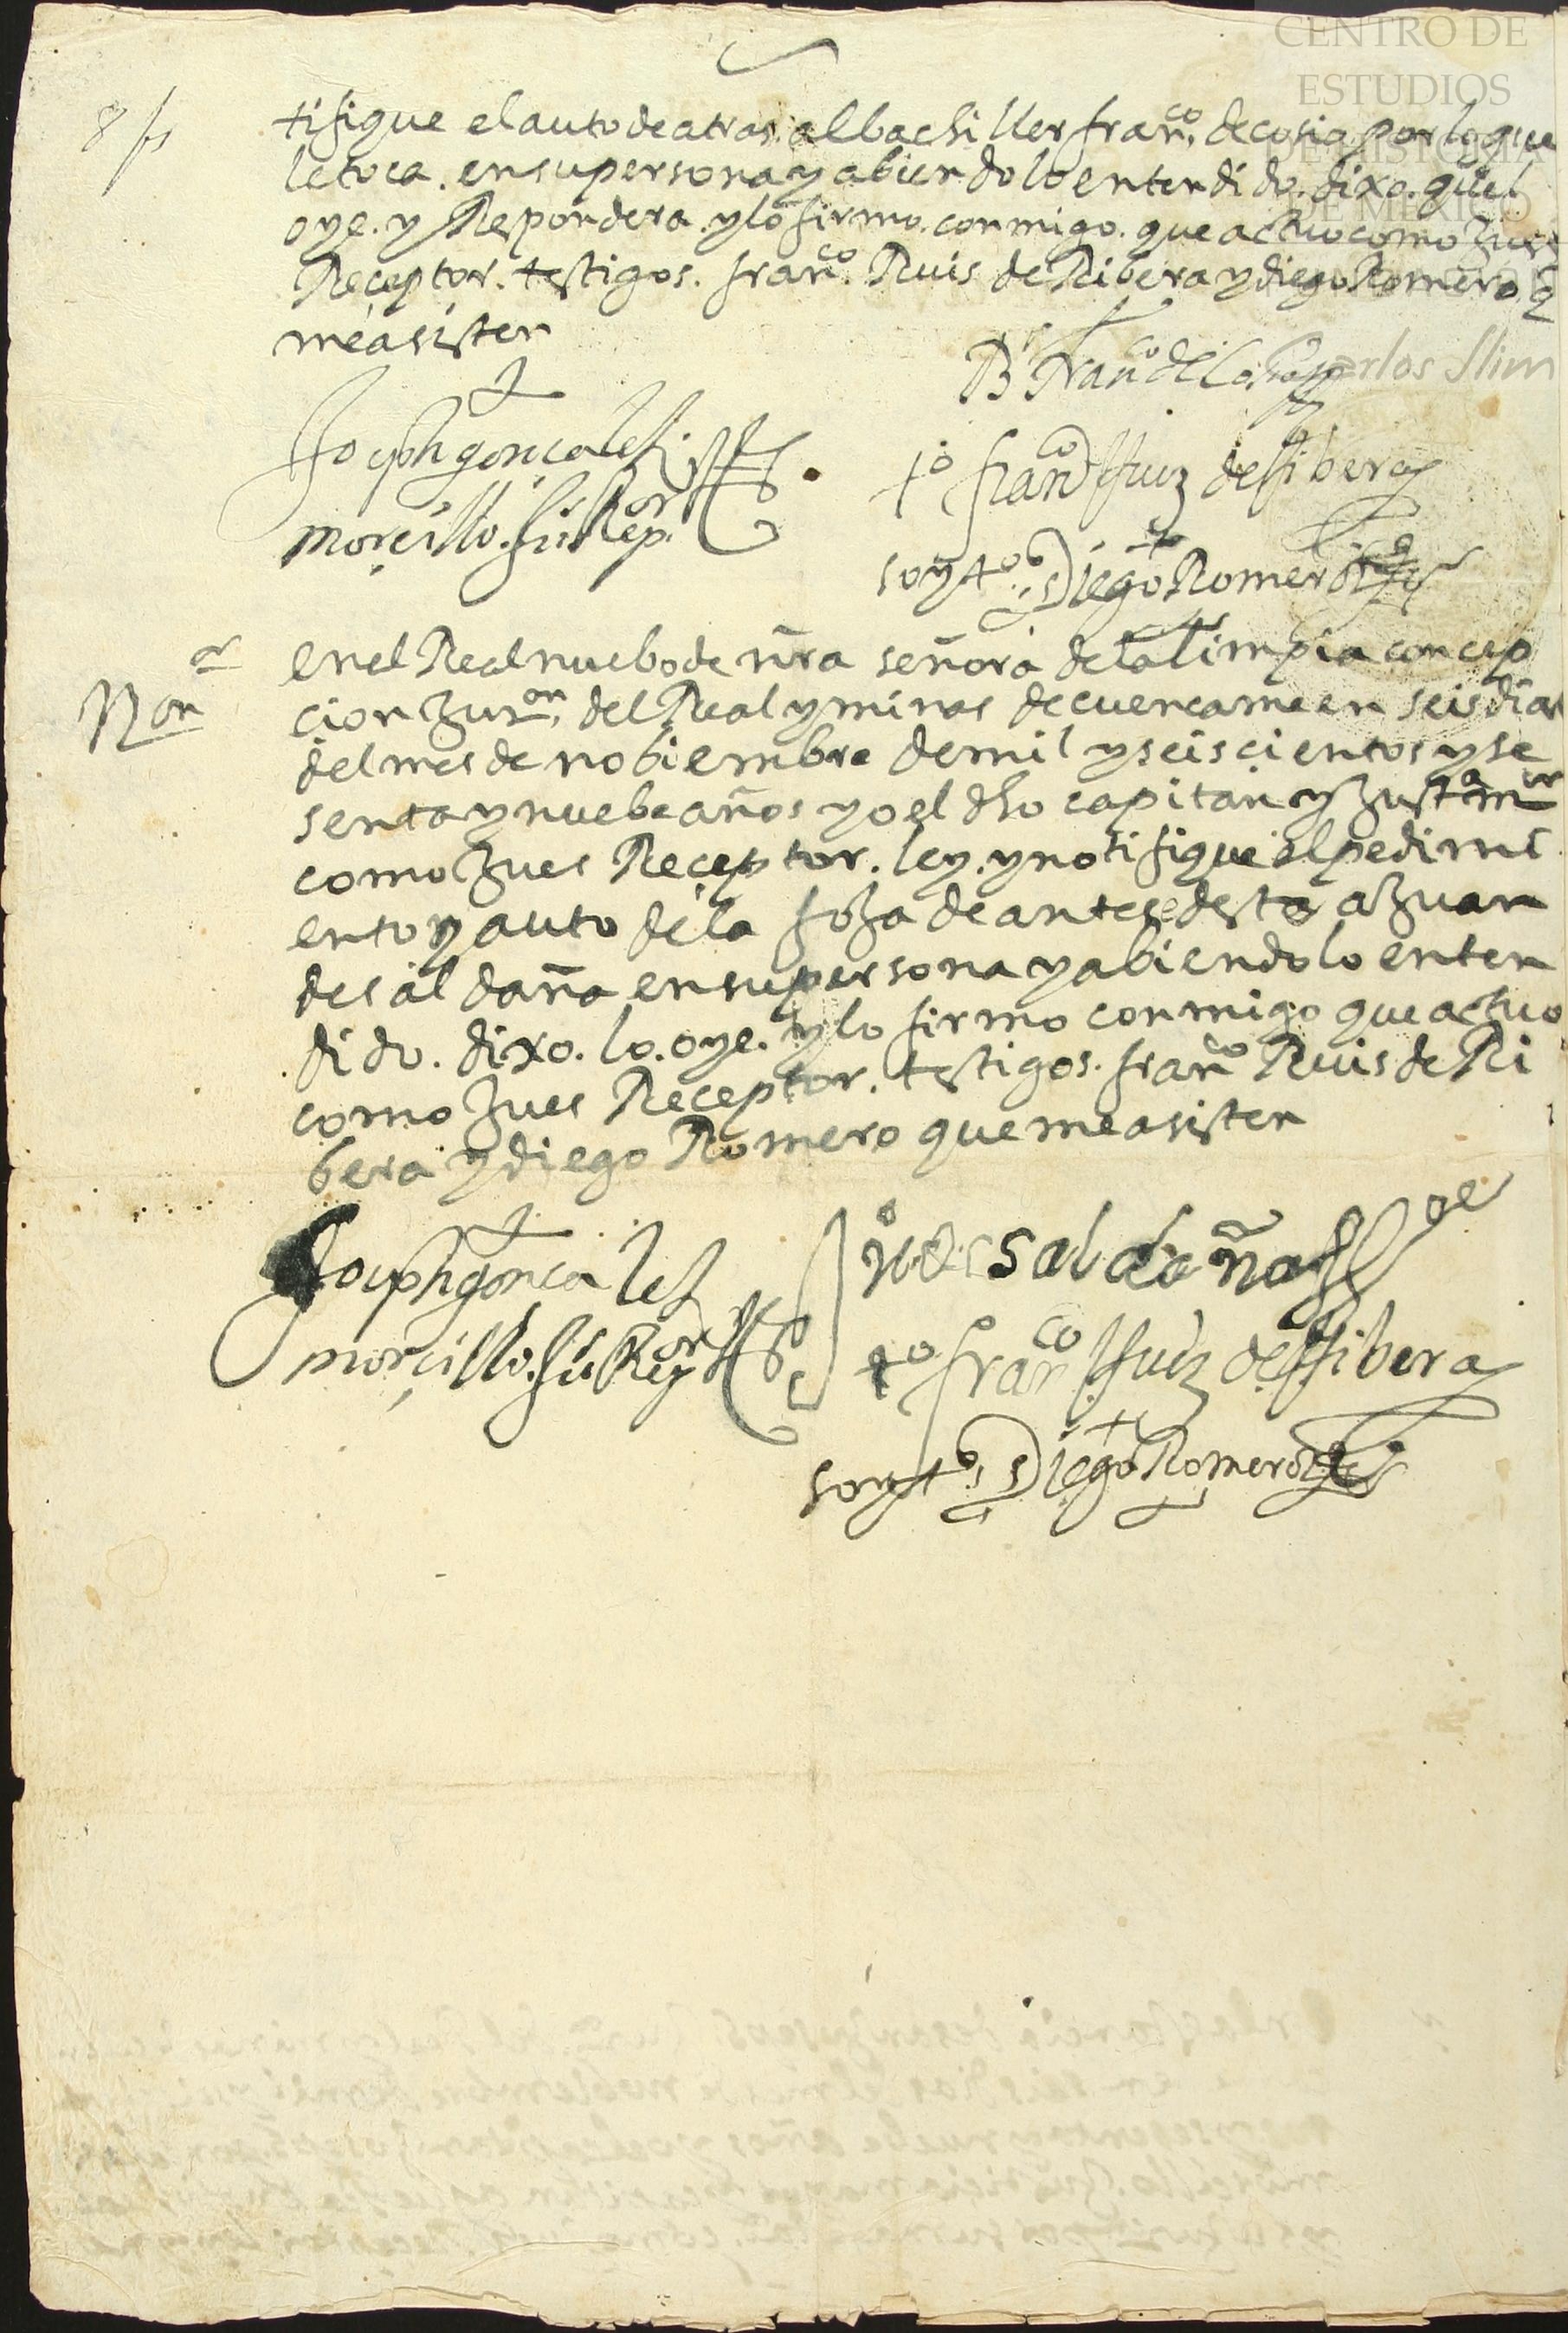 8 fs
tifique el auto de atras. al bachiller franco. de cosio por lo que
le toca. en su persona y abiendolo entendido. dixo. quel
oye. y Repondera. y lo firmo. conmigo. que actuo como Jues
Receptor. testigos. franco. Ruis de Ribera y diego Romero. q
me asisten
Br franco de Cosio
Joseph gonçales
morçillo. Jus Repor
to franco Ruiz de Ribera
soy to Diego Romero
Non
en el Real nuebo de nra señora de la limpia concep
cion Juron. del Real y minas de cuencame en seis dias
del mes de nobiembre de mil y seiscientos y se
senta y nuebe años yo el dho capitan y Justa mor
como Jues Receptor. ley. y notifique el pedimi
ento y auto de la foja de antes desta a Juan
de saldaña en su persona y abiendolo enten
dido. dixo. lo. oye. y lo firmo conmigo que actuo
como Jues Receptor. testigos. franco Ruis de Ri
bera y diego Romero que me asisten
Joseph gonçales
morçillo. Jus Repor
Ju de saldaña
to franco Ruiz de Ribera
soy to Diego Romero
CENTRO DE
ESTUDIOS
DE HISTORIA
DE MÉXICO
Carlos Slim